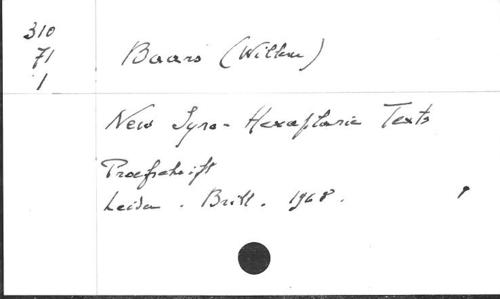 310
71
1
Baars (Willem)
New Syro-Hexaplaric Texts
Proefschrift
Leiden. Brill. 1968.